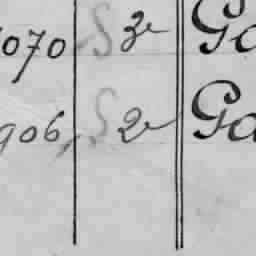 070 S 3e Ga
906 S 2e Ga